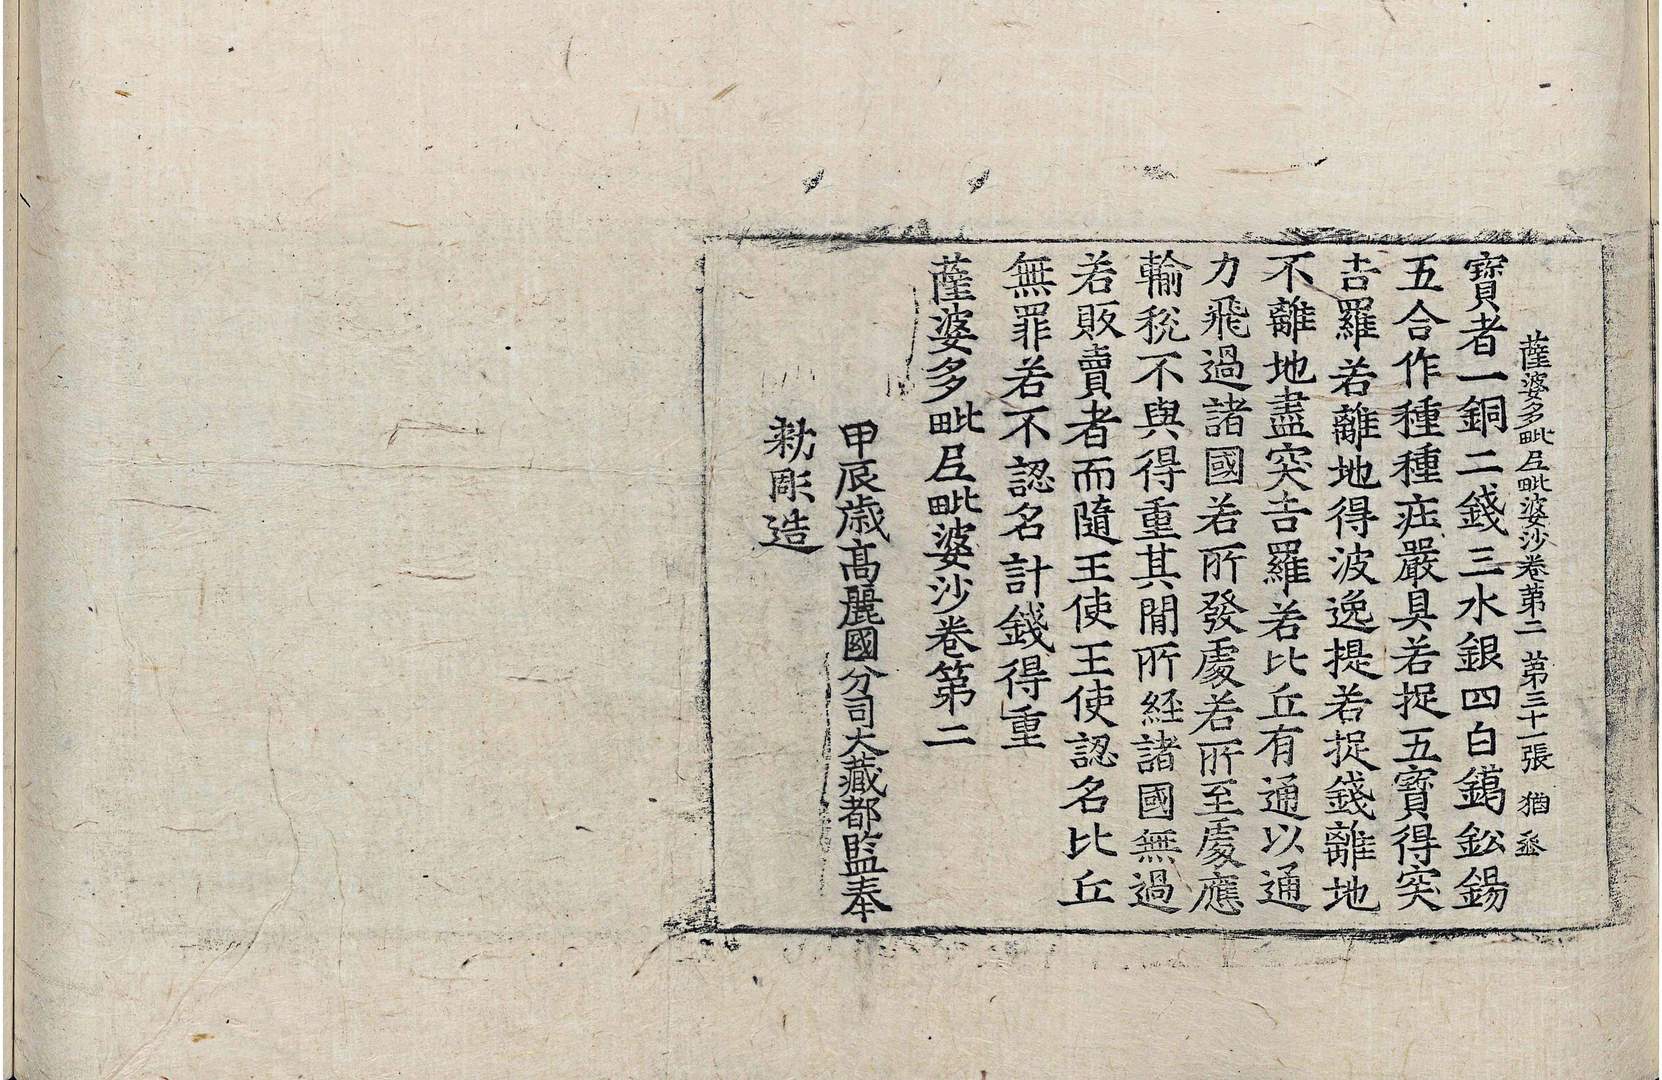 薩婆多毗尼毗婆沙卷第二 第三十一張 猶
寶者一銅二錢三水銀四白鑞鈆錫
五合作種種庄嚴具若捉五寶得突
吉羅若離地得波逸提若捉錢離地
不離地盡突吉羅若比丘有通以通
力飛過諸國若所發處若所至處應
輸稅不與得重其閒所經諸國無過
若販賣者而隨王使王使認名比丘
無罪若不認名計錢得重
薩婆多毗尼毗婆沙卷第二
甲辰歲高麗國分司大藏都監奉
勅彫造